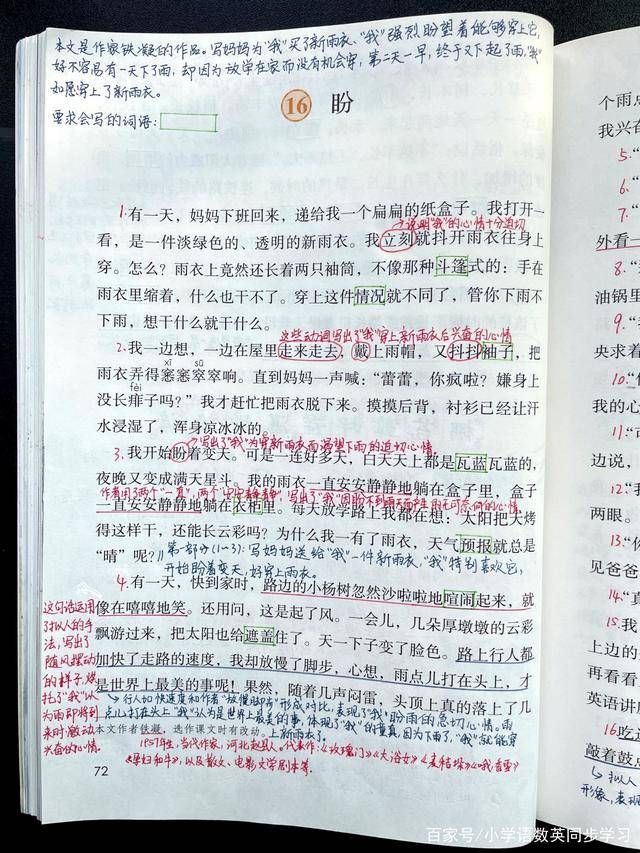 本文是作家铁凝的作品。写妈妈为“我”买了新雨衣、“我”强烈盼望着能够穿上它,
好不容易有一天下了雨,却因为放学在家而没有机会穿,第二天一早,终于又下起了雨,“我”
如愿穿上了新雨衣。
要求会写的词语:
16 盼
1.有一天,妈妈下班回来,递给我一个扁扁的纸盒子。我打开一
说明“我”的心情十分迫切
看,是一件淡绿色的、透明的新雨衣。我立刻就抖开雨衣往身上
穿。怎么?雨衣上竟然还长着两只袖筒,不像那种斗篷式的:手在
雨衣里缩着,什么也干不了。穿上这件情况就不同了,管你下雨不
下雨,想干什么就干什么。
这些动词写出了“我”穿上新雨衣后兴奋的心情
2.我一边想,一边在屋里走来走去,戴上雨帽,又抖抖袖子,把
xī sū
雨衣弄得窸窸窣窣响。直到妈妈一声喊:“蕾蕾,你疯啦?嫌身上
fèi
没长痱子吗?”我才赶忙把雨衣脱下来。摸摸后背,衬衫已经让汗
水浸湿了,浑身凉冰冰的。
写出了“我”为穿新雨衣而渴望下雨的迫切心情。
3.我开始盼着变天。可是一连好多天,白天天上都是瓦蓝瓦蓝的,
夜晚又变成满天星斗。我的雨衣一直安安静静地躺在盒子里,盒子
作者用了两个“一直”,两个“安安静静”,写出了“我”因盼不到雨天而产生的无可奈何的心情
一直安安静静地躺在衣柜里。每天放学路上我都在想:太阳把天烤
得这样干,还能长云彩吗?为什么我一有了雨衣,天气预报就总是
“晴”呢?
第一部分(1-3):写妈妈送给“我”一件新雨衣,“我”特别喜欢它,
开始盼着变天,好穿上雨衣。
4.有一天,快到家时,路边的小杨树忽然沙啦啦地喧闹起来,就
像在嘻嘻地笑。还用问,这是起了风。一会儿,几朵厚墩墩的云彩
飘游过来,把太阳也给遮盖住了。天一下子变了脸色。路上行人都
加快了走路的速度,我却放慢了脚步,心想,雨点儿打在头上,才
是世界上最美的事呢!果然,随着几声闷雷,头顶上真的落上了几
这句话运用
了拟人的手
法,写出了
随风摆动
的样子,烘
托了“我”认
为雨即将到
来时激动
兴奋的心情。
行人加快速度和作者“放慢脚步”形成对比,表现了“我”盼雨的急切心情。雨
点儿打在头上“我”认为是世界上最美的事,体现了“我”的童真,因为下雨了“我”就能穿
上新雨衣了。
本文作者铁凝,选作课文时有改动。
1957年生,当代作家,河北赵县人。代表作:《玫瑰门》《大浴女》《麦秸垛》《哦,香雪》
《孕妇和牛》,以及散文、电影文学剧本等。
72
个雨点
我兴在
5.“
6.“
7.“
外看一
8.“
油锅里
9.“
央求着
10.“
我的心
11.“
边说,
12.“
两眼。
13.“
见爸爸
14.“真
15.我
上边的
再看看
英语讲
16.吃
敲着鼓点
拟人
形象,表现
百家号/小学语数英同步学习